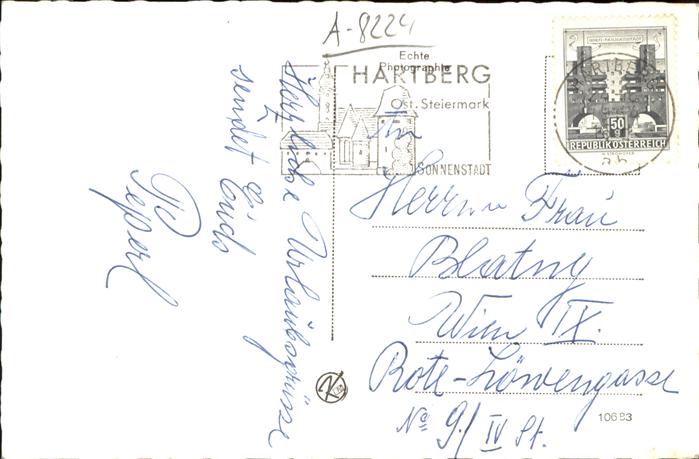 A-8224
Echte
Photographie
HARTBERG
Ost. Steiermark
SONNENSTADT
50 g
REPUBLIK ÖSTERREICH
Herzliche Urlaubsgrüsse
sendet Euch
Peperl
An
Herrn u Frau
Blatny
Wien IX.
Rote-Löwengasse
No 9./ IV St.
10683